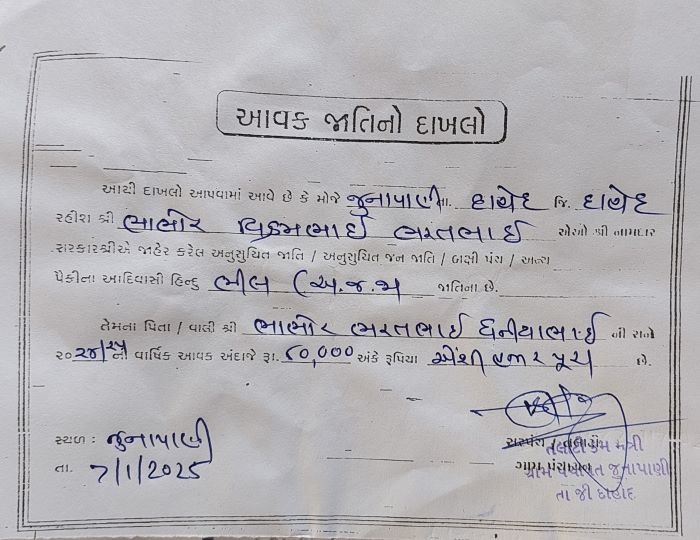 આવક જાતિનો દાખલો
આથી દાખલો આપવામાં આવે છે કે મોજે જુનાપાણી તા. દાહોદ જિ. દાહોદ
રહીશ શ્રી ભાભોર વિક્રમભાઈ ભરતભાઈ એઓ શ્રી નામદાર
સરકારશ્રીએ જાહેર કરેલ અનુસુચિત જાતિ / અનુસુચિત જન જાતિ / બક્ષી પંચ / અન્ય
પૈકીના આદિવાસી હિન્દુ ભીલ (અ.જ.જા જાતિના છે.
તેમના પિતા / વાલી શ્રી ભાભોર ભરતભાઈ ધનીયાભાઈ ની સને
૨૦૨૪/૨૫ ની વાર્ષિક આવક અંદાજે રૂા. ૮૦,૦૦૦ અંકે રૂપિયા એંશી હજાર પૂરા છે.
સ્થળ : જુનાપાણી
તા. 7/1/2025
તલાટી કમ મંત્રી
ગ્રામ પંચાયત જુનાપાણી
તા જી દાહોદ